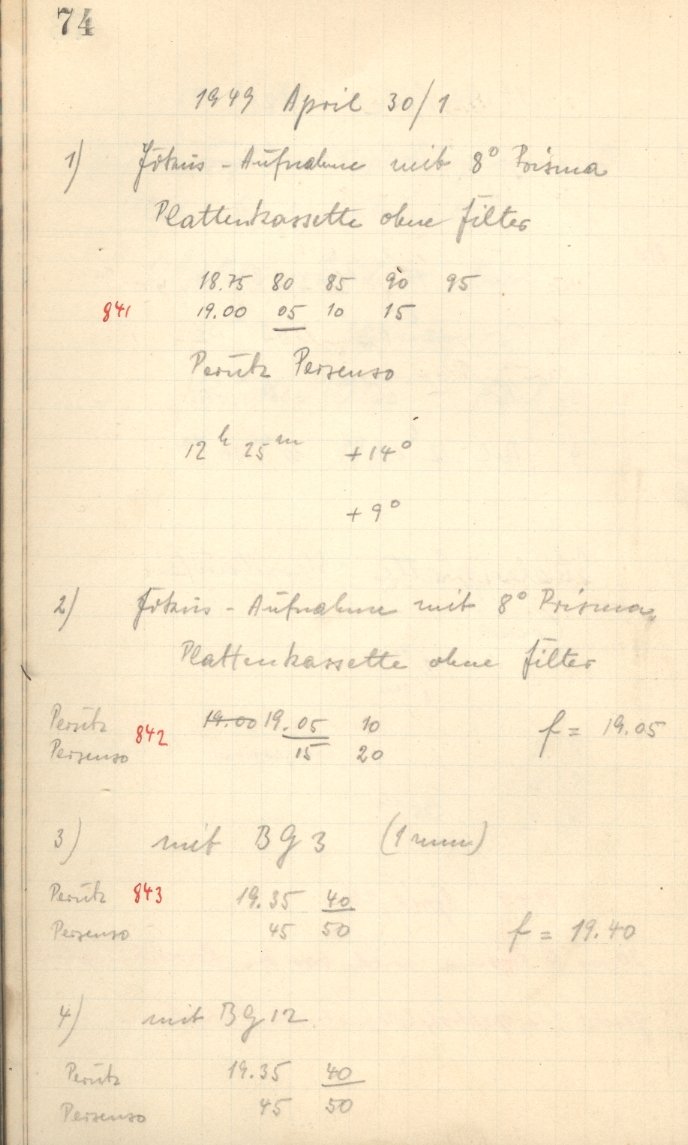 74
1949 April 30/1
1) Fokus-Aufnahme mit 8° Prisma
Plattenkassette ohne Filter
18.75 80 85 90 95
841 19.00 05 10 15
Perutz Persenso
12h 25m +14°
+9°
2) Fokus-Aufnahme mit 8° Prisma,
Plattenkassette ohne Filter
Perutz 842 19.00 19.05 10 f = 19.05
Persenso 15 20
3) mit BG 3 (1 mm)
Perutz 843 19.35 40
Persenso 45 50 f = 19.40
4) mit BG 12
Perutz 19.35 40
Persenso 45 50